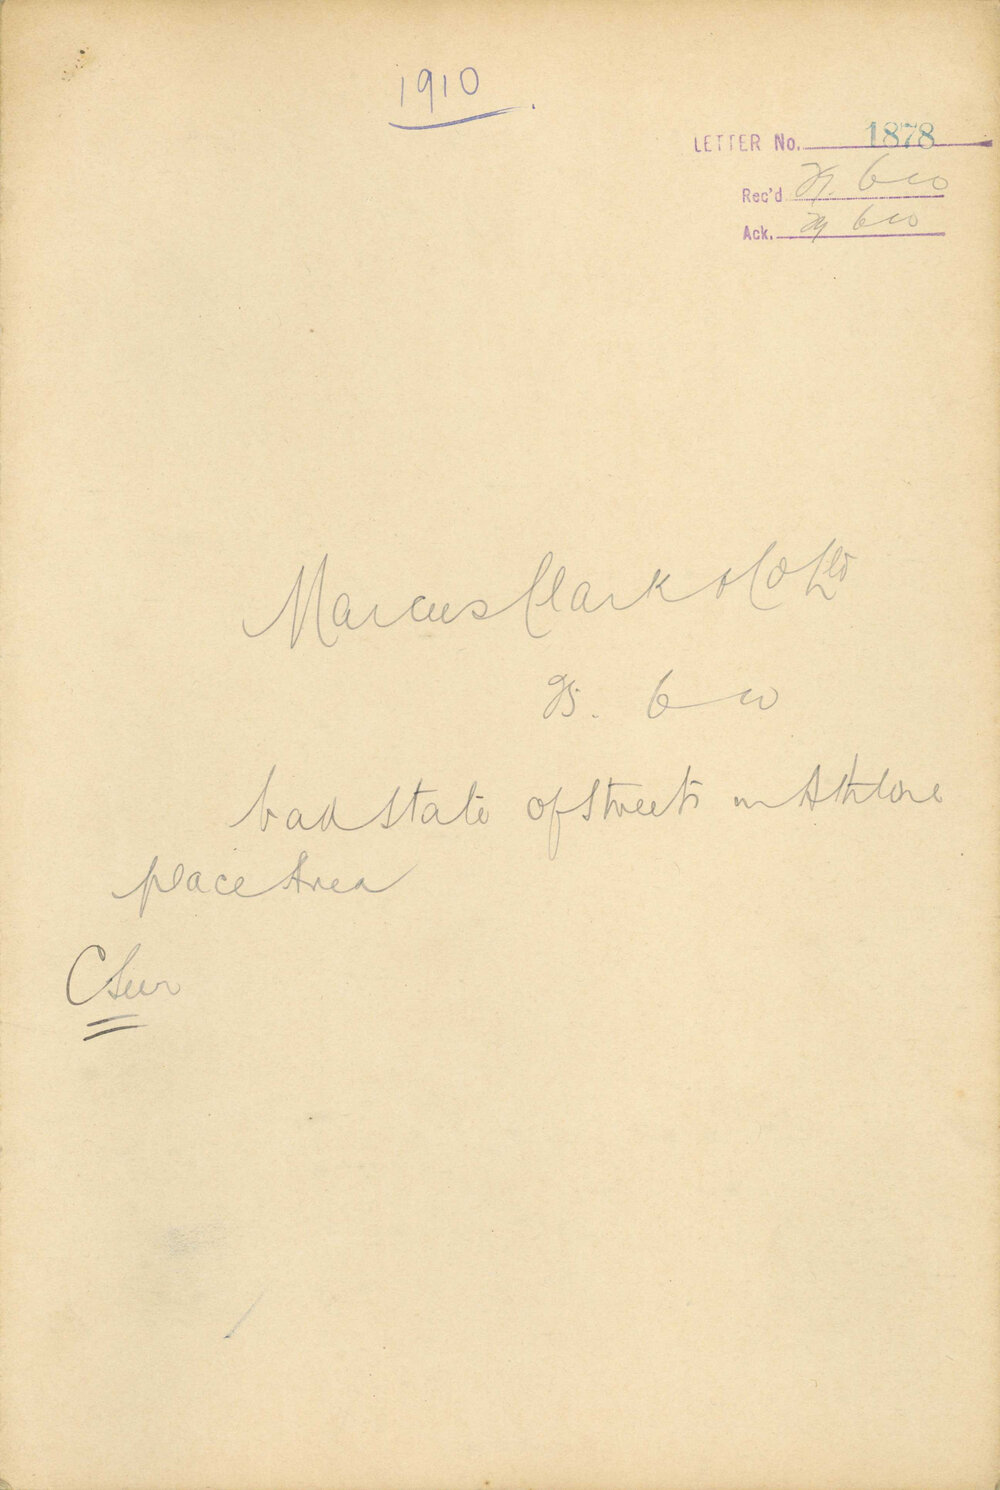 1910
LETTER No. 1878
Rec'd 27. 6 10
Ack. 29 6 10
Marcus Clark & Co Ltd
25. 6 10
bad state of Streets in Athlone
place Area
C Sur